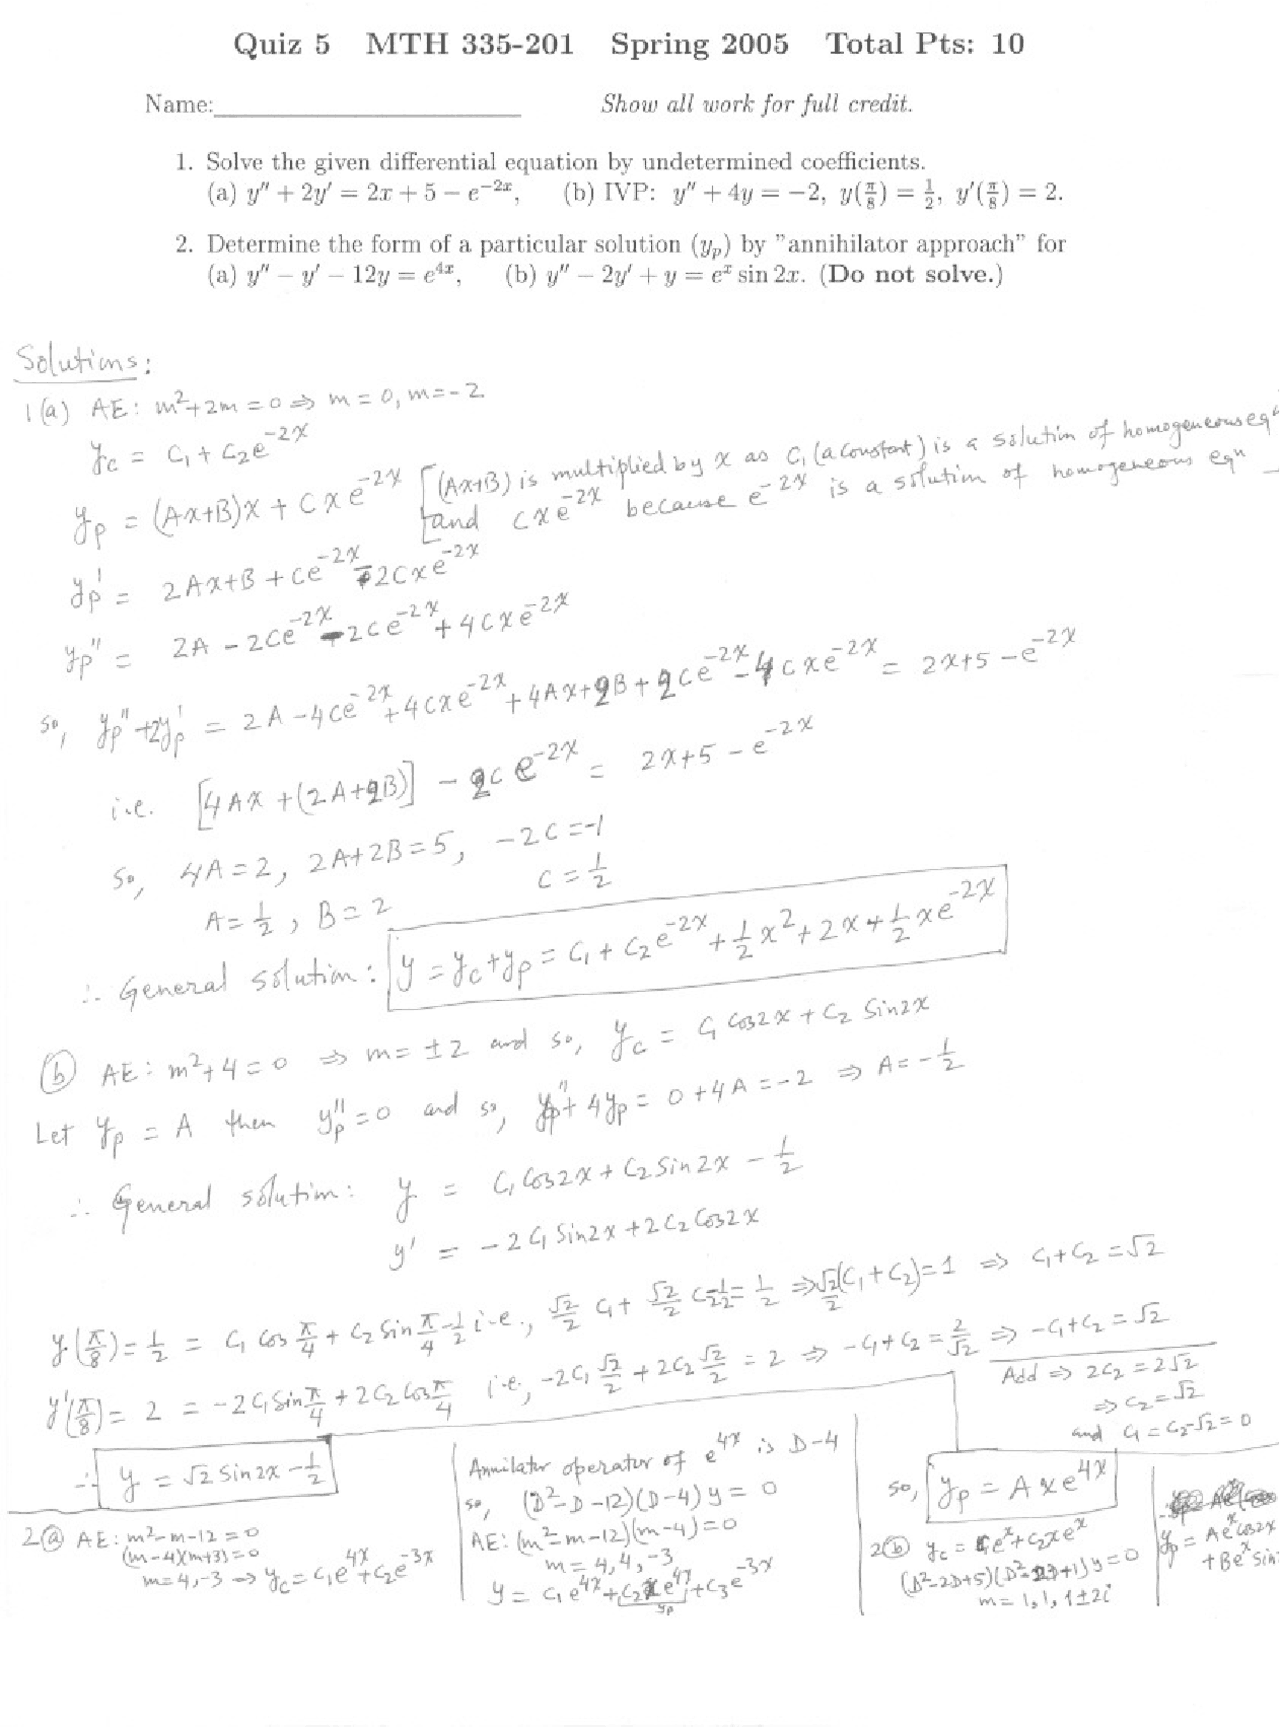 Quiz 5 MTH 335-201 Spring 2005 Total Pts: 10
Name:____________________ Show all work for full credit.
1. Solve the given differential equation by undetermined coefficients.
(a) y'' + 2y' = 2x + 5 − e^{−2x}, (b) IVP: y'' + 4y = −2, y(π/8) = 1/2, y'(π/8) = 2.
2. Determine the form of a particular solution (y_p) by "annihilator approach" for
(a) y'' − y' − 12y = e^{4x}, (b) y'' − 2y' + y = e^x sin 2x. (Do not solve.)
Solutions:
1(a) AE: m²+2m = 0 ⇒ m = 0, m = -2
y_c = C₁ + C₂e^{-2x}
y_p = (Ax+B)x + Cxe^{-2x} [(Ax+B) is multiplied by x as C₁ (a constant) is a solution of homogeneous eqⁿ
and Cxe^{-2x} because e^{-2x} is a solution of homogeneous eqn
y_p' = 2Ax+B + Ce^{-2x} - 2Cxe^{-2x}
y_p'' = 2A - 2Ce^{-2x} - 2Ce^{-2x} + 4Cxe^{-2x}
so, y_p''+2y_p' = 2A - 4Ce^{-2x} + 4Cxe^{-2x} + 4Ax + 2B + 2Ce^{-2x} - 4Cxe^{-2x} = 2x+5 - e^{-2x}
i.e. [4Ax + (2A+2B)] - 2Ce^{-2x} = 2x+5 - e^{-2x}
So, 4A = 2, 2A+2B = 5, -2C = -1
A = 1/2, B = 2 C = 1/2
∴ General solution: y = y_c + y_p = C₁ + C₂e^{-2x} + 1/2 x² + 2x + 1/2 xe^{-2x}
(b) AE: m²+4 = 0 ⇒ m = ±2 and so, y_c = C₁ Cos2x + C₂ Sin2x
Let y_p = A then y_p'' = 0 and so, y_p'' + 4y_p = 0 + 4A = -2 ⇒ A = -1/2
∴ General solution: y = C₁ Cos2x + C₂ Sin2x - 1/2
y' = -2C₁ Sin2x + 2C₂ Cos2x
y(π/8) = 1/2 = C₁ Cos π/4 + C₂ Sin π/4 - 1/2 i.e., √2/2 C₁ + √2/2 C₂ - 1/2 = 1/2 ⇒ √2/2 (C₁+C₂) = 1 ⇒ C₁+C₂ = √2
y'(π/8) = 2 = -2C₁ Sin π/4 + 2C₂ Cos π/4 i.e, -2C₁ √2/2 + 2C₂ √2/2 = 2 ⇒ -C₁+C₂ = 2/√2 ⇒ -C₁+C₂ = √2
Add ⇒ 2C₂ = 2√2
⇒ C₂ = √2
and C₁ = C₂-√2 = 0
∴ y = √2 Sin2x - 1/2
2(a) AE: m²-m-12 = 0
(m-4)(m+3) = 0
m = 4, -3 ⇒ y_c = C₁e^{4x} + C₂e^{-3x}
Annilator operator of e^{4x} is D-4
so, (D²-D-12)(D-4)y = 0
AE: (m²-m-12)(m-4) = 0
m = 4, 4, -3
y = C₁e^{4x} + C₂xe^{4x} + C₃e^{-3x}
y_p
So, y_p = Axe^{4x}
2(b) y_c = C₁e^x + C₂xe^x
(D²-2D+5)(D²-2D+1)y = 0
m = 1, 1, 1±2i
y_p = Ae^x cos2x
+ Be^x Sin